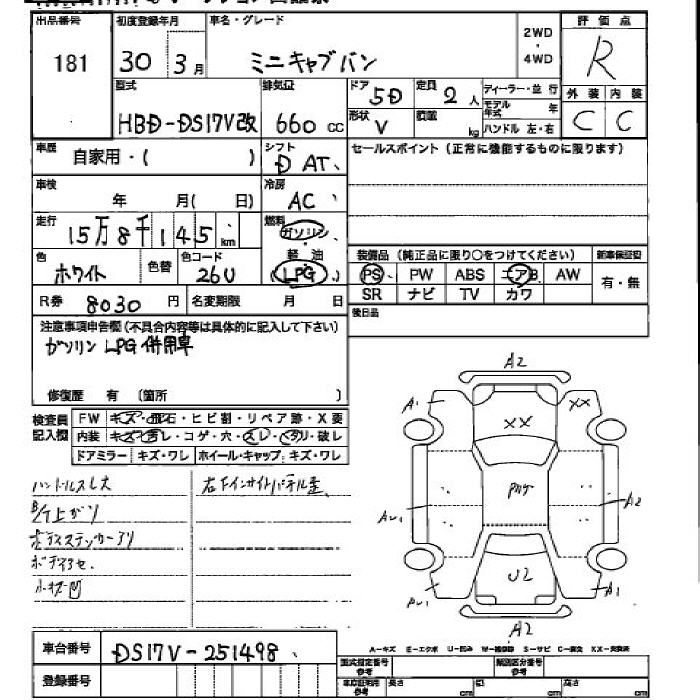 出品番号 初度登録年月 車名・グレード 2WD・4WD 評価点
181 30年 3月 ミニキャブバン R
型式 排気量 ドア 5D 定員 2人 ディーラー・並行 外装 内装
HBD-DS17V改 660cc 形状 V 積載 kg モデル年式 年 ハンドル 左・右 C C
車歴 自家用・( ) シフト D AT セールスポイント(正常に機能するものに限ります)
車検 年 月( 日) 冷房 AC
走行 15万8千145km 燃料 ガソリン 軽油 LPG
色 ホワイト 色替 色コード 26U
装備品(純正品に限り○をつけてください) 新車保証書
PS PW ABS エアB AW 有・無
SR ナビ TV カワ
R券 8030円 名変期限 月 日 後日品
注意事項申告欄(不具合内容等は具体的に記入して下さい)
ガソリン LPG 併用車
修復歴 有 (箇所 )
検査員記入欄 FW キズ・飛石・ヒビ割・リペア跡・X要
内装 キズ・ヨゴレ・コゲ・穴・スレ・ヘタリ・破レ
ドアミラー キズ・ワレ ホイール・キャップ:キズ・ワレ
ハンドルスレ大 右下インサイドパネル歪
ボデスステッカーアリ
ボディアセ
小キズ凹
A2
A1 XX XX
Au1 A2
U2 A1
A2
A-キズ E-エクボ U-凹み W-補修跡 S-サビ C-腐食 XX-交換済
車台番号 DS17V-251498
登録番号
型式指定番号 参考 類別区分番号 参考
車庫証明用 参考 長さ cm 幅 cm 高さ cm